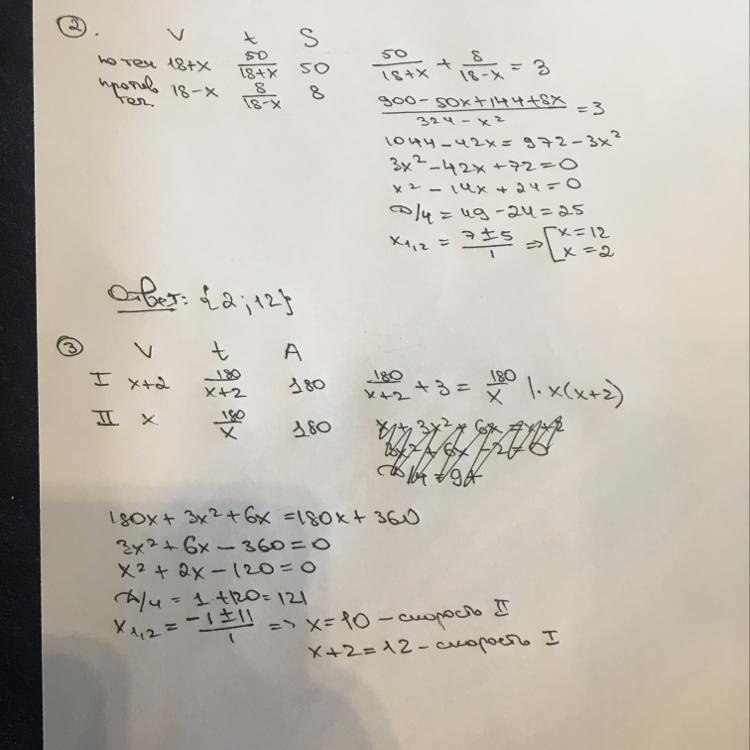 2.
V t S
по теч 18+x 50/(18+x) 50
против теч. 18-x 8/(18-x) 8
50/(18+x) + 8/(18-x) = 3
(900-50x+144+8x)/(324-x²) = 3
1044-42x=972-3x²
3x²-42x+72=0
x²-14x+24=0
D/4=49-24=25
x₁,₂ = (7±5)/1 ⇒ [x=12
x=2
Ответ: {2;12}
3
V t A
I x+2 180/(x+2) 180
II x 180/x 180
180/(x+2) + 3 = 180/x |·x(x+2)
180x+3x²+6x=180x+360
3x²+6x-360=0
x²+2x-120=0
D/4=1+120=121
x₁,₂ = (-1±11)/1 ⇒ x=10 - скорость II
x+2=12 - скорость I